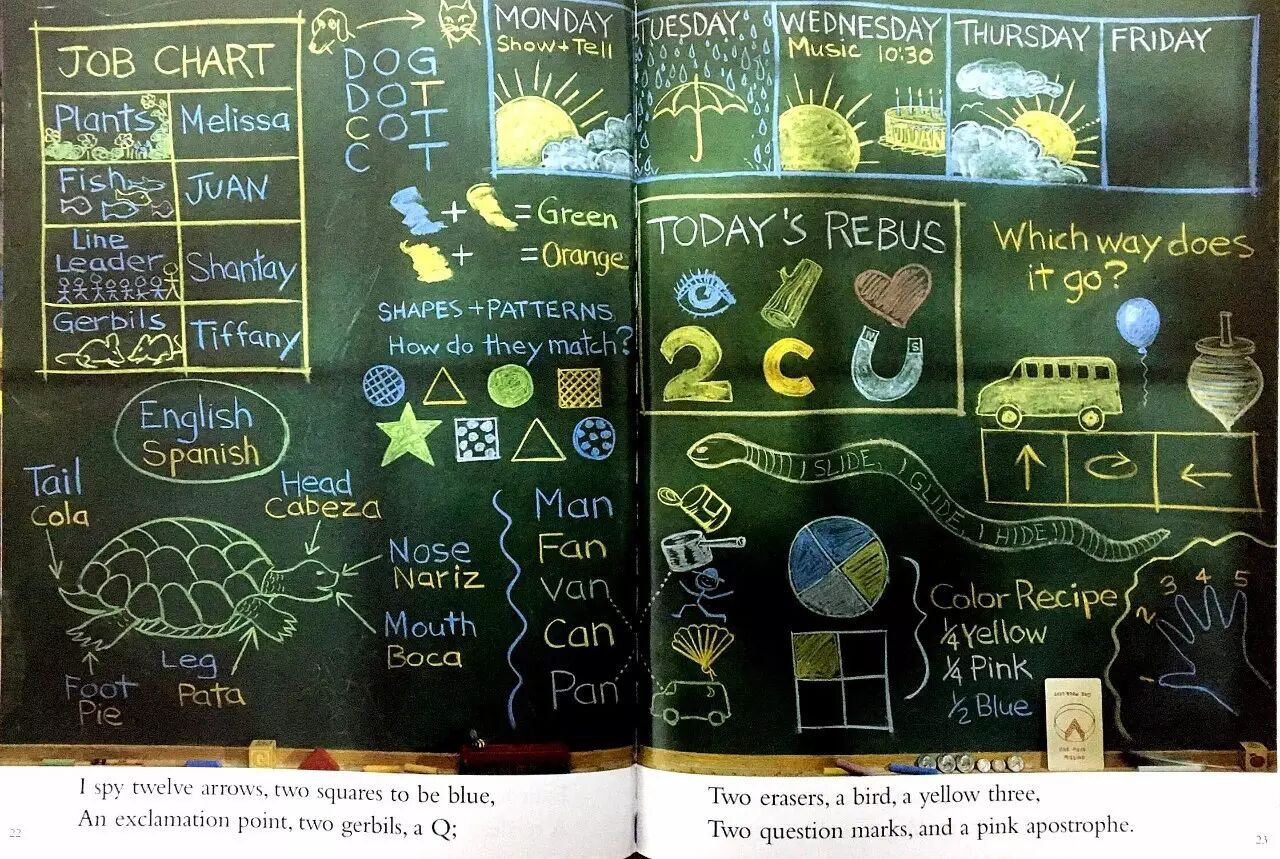 JOB CHART
Plants Melissa
Fish JUAN
Line
Leader Shantay
Gerbils Tiffany
DOG
DOT
COT
C T
MONDAY
Show + Tell
TUESDAY
WEDNESDAY
Music 10:30
THURSDAY
FRIDAY
+ = Green
+ = Orange
SHAPES + PATTERNS
How do they match?
English
Spanish
Tail
Cola
Head
Cabeza
Nose
Nariz
Mouth
Boca
Leg
Pata
Foot
Pie
Man
Fan
Van
Can
Pan
TODAY'S REBUS
N S
2 C
Which way does
it go?
I SLIDE, I GLIDE, I HIDE!!!
Color Recipe
1/4 Yellow
1/4 Pink
1/2 Blue
1 2 3 4 5
I spy twelve arrows, two squares to be blue,
An exclamation point, two gerbils, a Q;
22
Two erasers, a bird, a yellow three,
Two question marks, and a pink apostrophe.
23